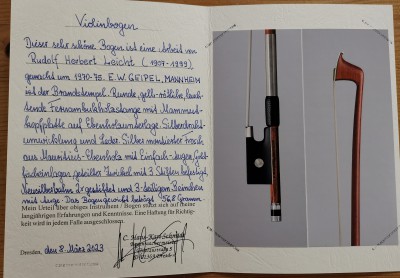 Violinbogen
Dieser sehr schöne Bogen ist eine Arbeit von
Rudolf Herbert Leicht (1907-1999)
gemacht um 1970-75. E.W. GEIPEL, MANNHEIM
ist der Brandstempel. Runde, gelb-rötliche, leuch-
tende Fernambukholzstange mit Mammut-
kopfplatte auf Ebenholzunterlage. Silberdraht-
umwicklung und Leder. Silber montierter Frosch
aus Mauritius-Ebenholz mit Einfach-Augen,
geteilter mit 3 Stiften befestigt,
Neusilberbahn 2x gestiftet und 3-teiligen Beinchen
mit Auge. Das Bogengewicht beträgt Gramm
Mein Urteil über obiges Instrument / Bogen stützt sich auf meine
langjährigen Erfahrungen und Kenntnisse. Eine Haftung für Richtig-
keit wird in jedem Falle ausgeschlossen.
Dresden, den 8. März 2023